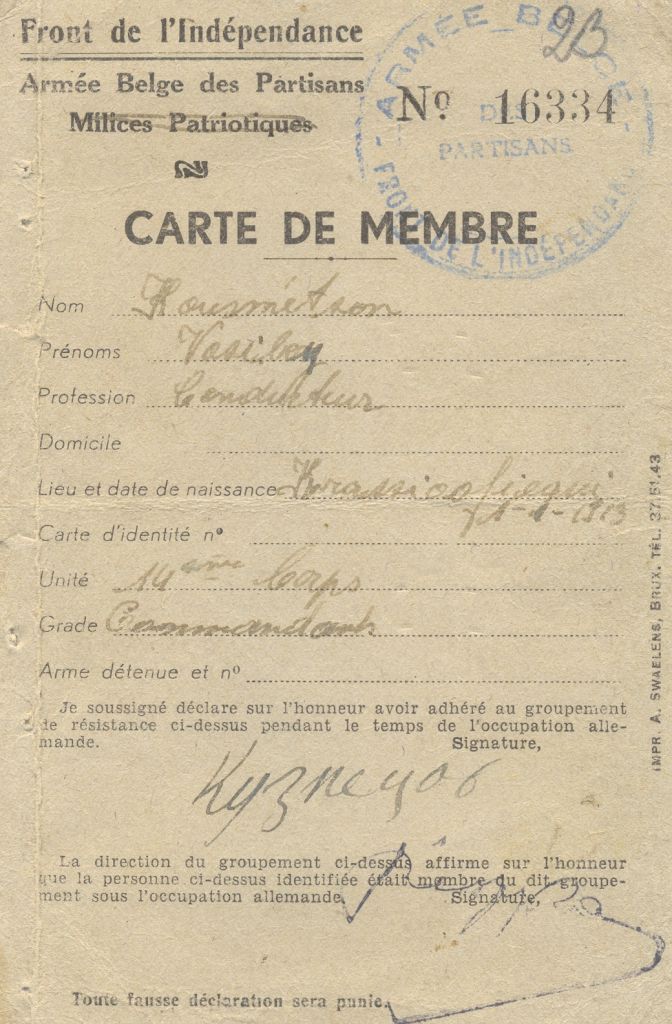 Front de l'Indépendance
Armée Belge des Partisans
Milices Patriotiques
2B
ARMÉE BELGE
DES
PARTISANS
FRONT DE L'INDÉPENDANCE
Nº 16334
CARTE DE MEMBRE
Nom Kousmétson
Prénoms Vasiley
Profession Conducteur
Domicile
Lieu et date de naissance
1913
Carte d'identité nº
Unité 14ème Corps
Grade Commandant
Arme détenue et nº
Je soussigné déclare sur l'honneur avoir adhéré au groupement
de résistance ci-dessus pendant le temps de l'occupation alle-
mande. Signature,
Кузнецов
La direction du groupement ci-dessus affirme sur l'honneur
que la personne ci-dessus identifiée était membre du dit groupe-
ment sous l'occupation allemande. Signature,
Toute fausse déclaration sera punie.
IMPR. A. SWAELENS, BRUX. TÉL. 37.61.43